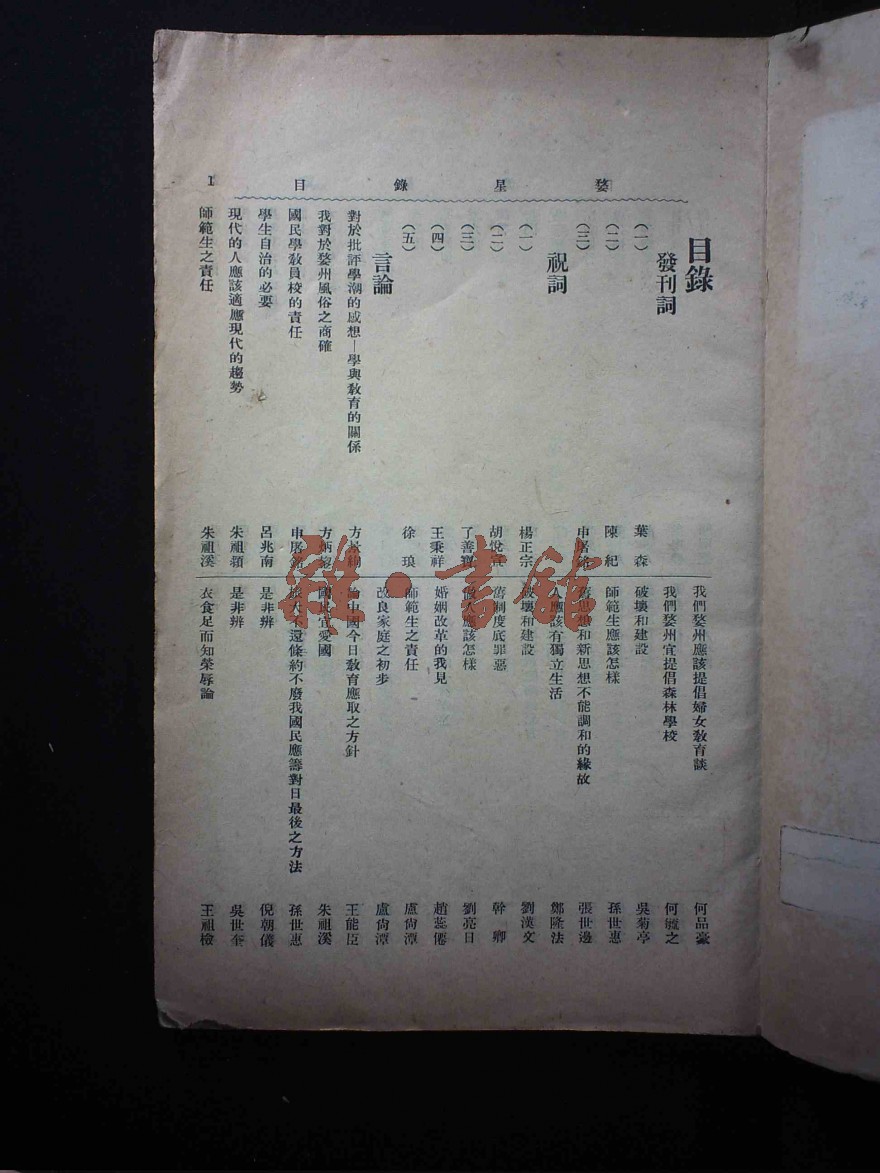 婺星錄目
1
目錄
發刊詞
(一) 葉森
(二) 陳紀
(三) 申屠
祝詞
(一) 楊正宗
(二) 胡悅
(三) 了善
(四) 王秉祥
(五) 徐琅
言論
對於批評學潮的感想—學與敎育的關係 方
我對於婺州風俗之商確 方炳
國民學敎員校的責任 申屠
學生自治的必要 呂兆南
現代的人應該適應現代的趨勢 朱祖
師範生之責任 朱祖溪
我們婺州應該提倡婦女敎育談 何品豪
我們婺州宜提倡森林學校 何毓之
破壞和建設 吳菊亭
師範生應該怎樣 孫世惠
舊思想和新思想不能調和的緣故 張世邊
人應該有獨立生活 鄭隆法
破壞和建設 劉漢文
制度底罪惡 幹卿
做人應該怎樣 劉亮日
婚姻改革的我見 趙蕊僊
師範生之責任 盧尙潭
改良家庭之初步 盧尙潭
論中國今日敎育應取之方針 王能臣
國民宜愛國 朱祖溪
旅大不還條約不廢我國民應籌對日最後之方法 孫世惠
是非辨 倪朝儀
是非辨 吳世奎
衣食足而知榮辱論 王祖檢
雜·書館